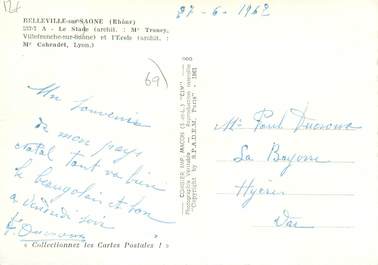 BELLEVILLE-sur-SAONE (Rhône)
237-7 A - Le Stade (archit. : Mr Troncy,
Villefranche-sur-Saône) et l'Ecole (archit. :
Mr Cahendet, Lyon.)
27-6-1962
69
Un souvenir
de mon pays
natal tout va bien
le beaujolais est bon
a vendredi soir
« Collectionnez les Cartes Postales ! »
COMBIER IMP. MACON (S.-&-L.) "CIM"
Photographie Véritable - Reproduction interdite
"Copyright by S.P.A.D.E.M. Paris" - 1961
Mr Paul
La Bayorre
Hyères
Var